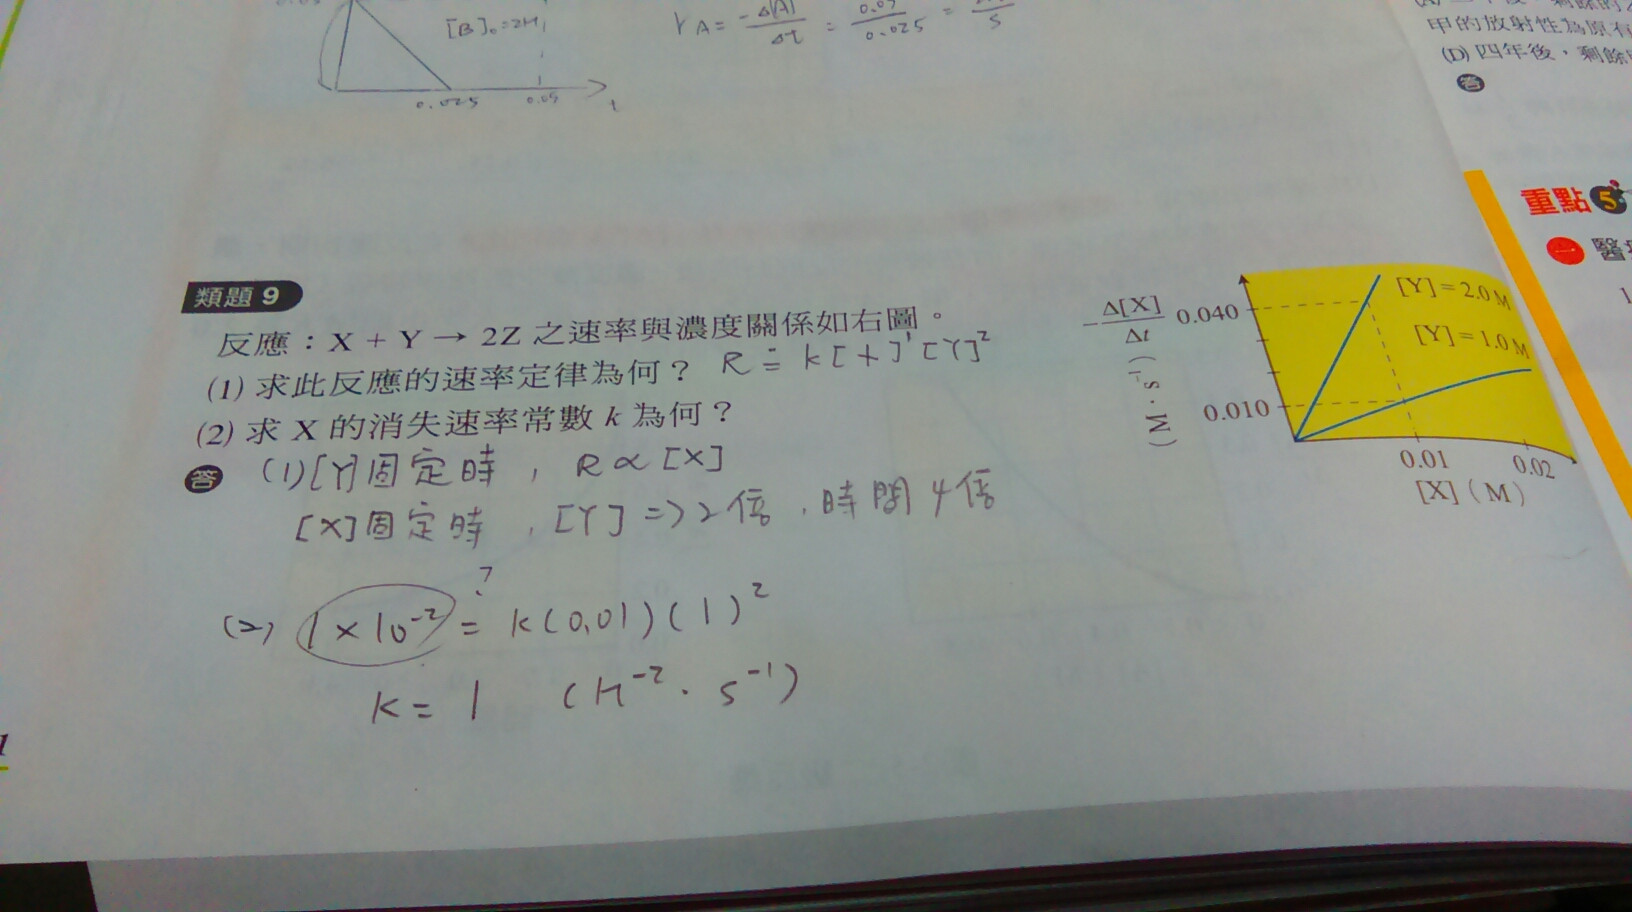 [B]₀=2M
0.025
0.05
t
rA = -Δ[A]/Δt = 0.05/0.025 =
甲的放射性為原有
(D) 四年後，剩餘
答
重點 5
一 醫
類題 9
反應：X + Y → 2Z 之速率與濃度關係如右圖。
(1) 求此反應的速率定律為何？ R = k[X]¹[Y]²
(2) 求 X 的消失速率常數 k 為何？
答 (1)[Y]固定時，R∝[X]
[X]固定時，[Y]=>2倍，時間4倍
?
(2) 1×10⁻² = k(0.01)(1)²
k = 1 (M⁻²·s⁻¹)
-Δ[X]/Δt (M·s⁻¹)
0.040
0.010
[Y]=2.0 M
[Y]=1.0 M
0.01
0.02
[X] (M)